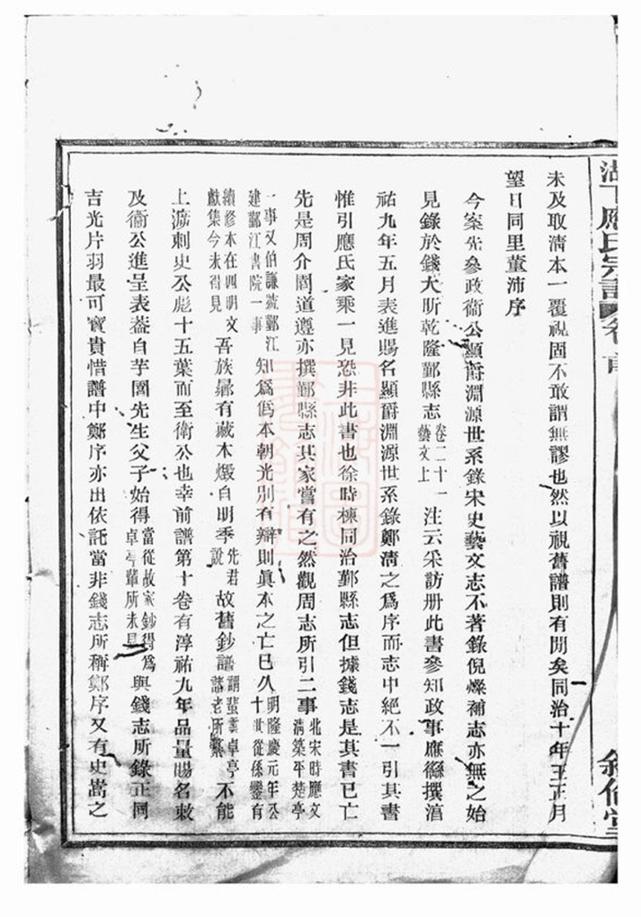 未及取清本一覆視固不敢謂無謬也然以視舊譜則有閒矣同治十年三正月
望日同里董沛序
今案先參政衞公顯爵淵源世系錄宋史藝文志不著錄倪燦補志亦無之始
見錄於錢大昕乾隆鄞縣志卷二十一藝文上注云采訪册此書參知政事應𦅸撰淳
祐九年五月表進賜名顯爵淵源世系錄鄭清之爲序而志中絶不一引其書
惟引應氏家乘一見恐非此書也徐時棟同治鄞縣志但據錢志是其書已亡
先是周介園道遵亦撰鄞縣志其家當有之然觀周志所引二事北宋時應文清築平楚亭
一事又伯謙號鄞江建鄞江書院一事知爲僞本朝光別有辯則眞本之亡已久明隆慶元年公十世從孫鏖有
續修本在四明文獻集今未得見吾族鼻有藏本燬自明季先君說故舊鈔譜謂蜚雲卓亭諸老所纂不能
上溯刺史公彪十五葉而至衞公也幸前譜第十卷有淳祐九年品量賜名敕
及衞公進呈表葢自芋園先生父子始得當從故家鈔得爲卓亭輩所未見與錢志所錄正同
吉光片羽最可寶貴惜譜中鄭序亦出依託當非錢志所稱鄭序又有史嵩之
應氏宗譜
卷首